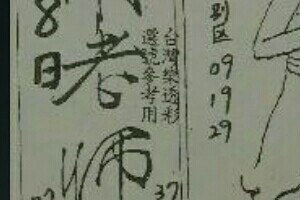 8
日
老師
台灣樂透彩
選號參考用
37
別区
09
19
29